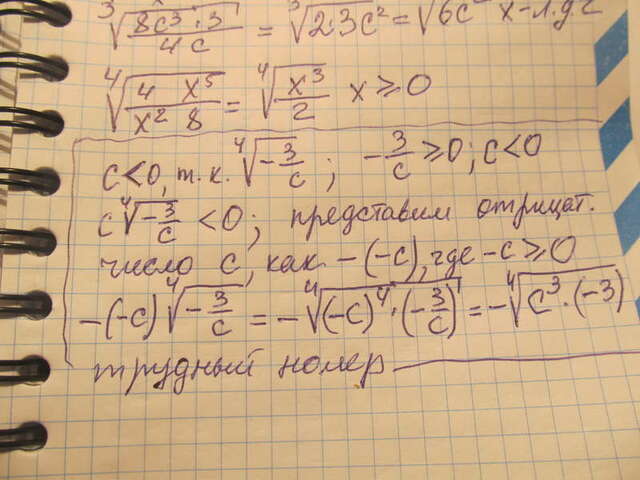 ∛(8c³·3/4c) = ∛(2·3c²) = √6c² х-л.д.г
⁴√(4 x⁵/x² 8) = ⁴√(x³/2) x ≥ 0
c<0, т.к. ⁴√(-3/c); -3/c ≥ 0; c<0
c⁴√(-3/c) < 0; представим отрицат.
число c, как -(-c), где -c ≥ 0
-(-c)⁴√(-3/c) = -⁴√((-c)⁴·(-3/c)) = -⁴√(c³·(-3))
трудный номер